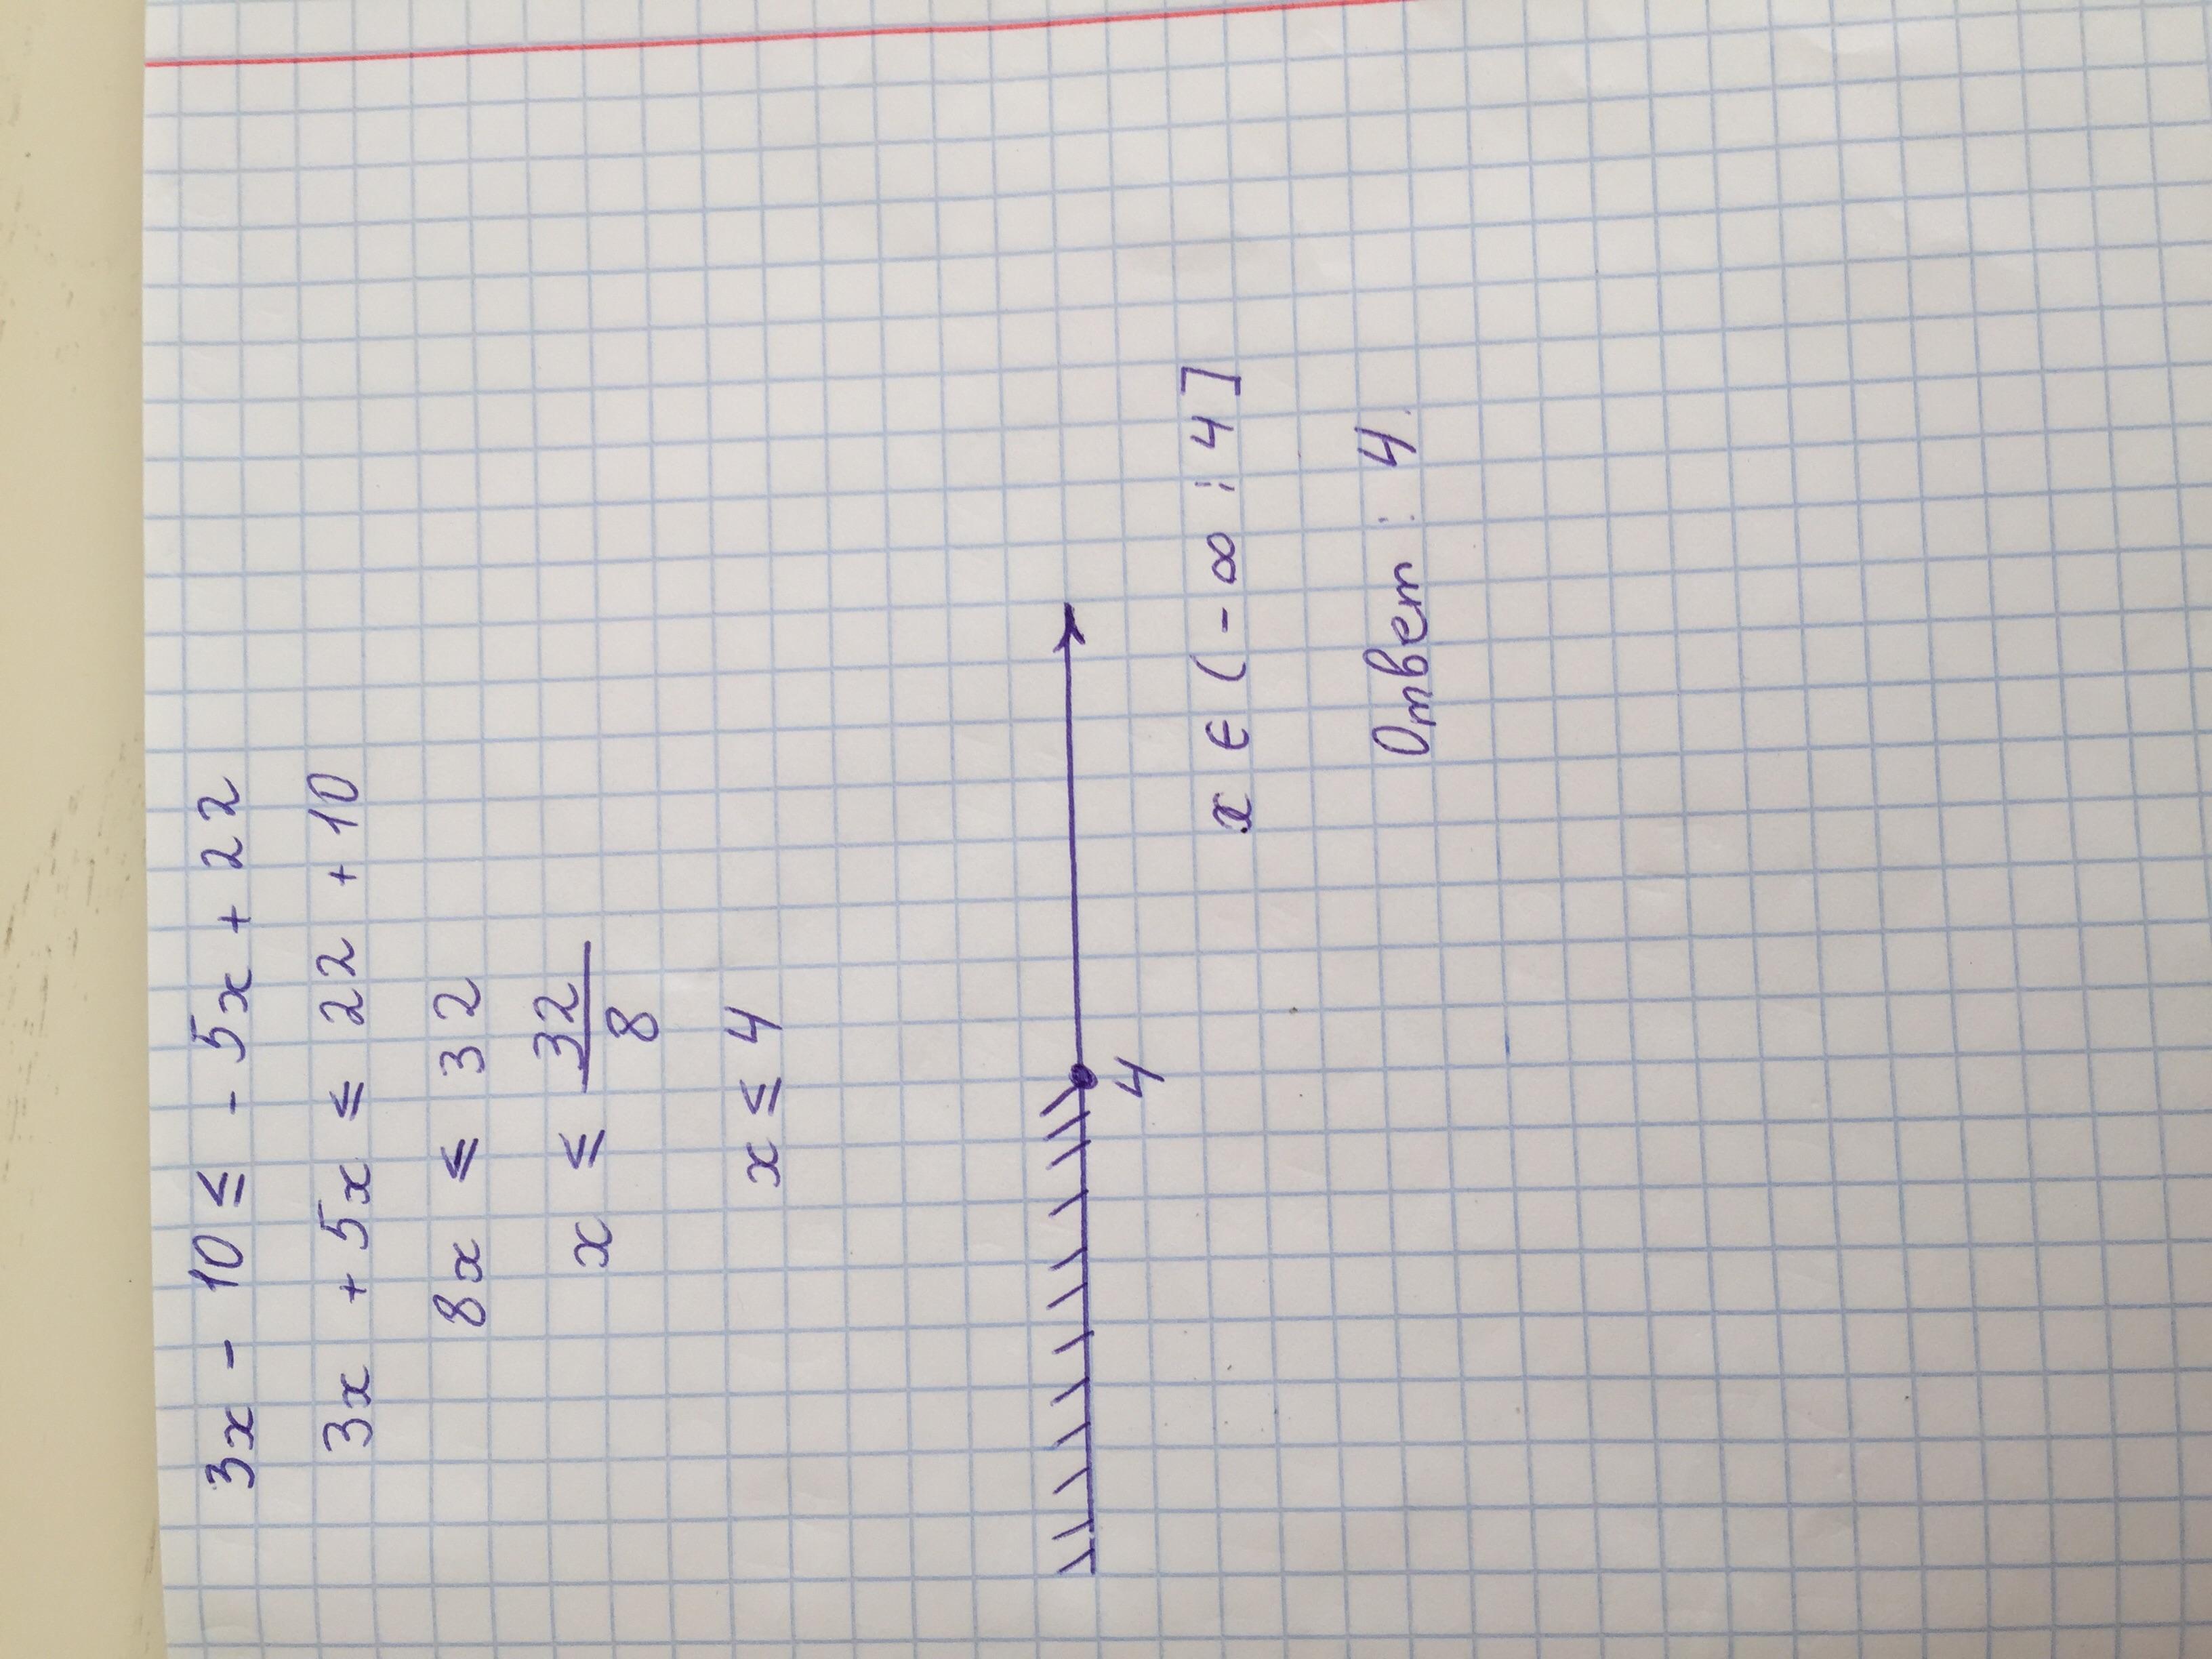 3x - 10 ≤ - 5x + 22
3x + 5x ≤ 22 + 10
8x ≤ 32
x ≤ 32/8
x ≤ 4
4
x ∈ (-∞ ; 4]
Ответ : 4.